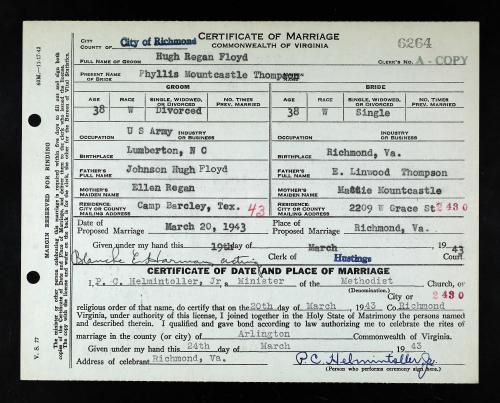 CERTIFICATE OF MARRIAGE
CITY
COUNTY OF City of Richmond
COMMONWEALTH OF VIRGINIA
6264
FULL NAME OF GROOM Hugh Regan Floyd
CLERK'S NO. A - COPY
PRESENT NAME OF BRIDE Phyllis Mountcastle Thompson
GROOM BRIDE
AGE 38 RACE W SINGLE, WIDOWED, OR DIVORCED Divorced NO. TIMES PREV. MARRIED AGE 38 RACE W SINGLE, WIDOWED, OR DIVORCED Single NO. TIMES PREV. MARRIED
OCCUPATION U S Army INDUSTRY OR BUSINESS OCCUPATION INDUSTRY OR BUSINESS
BIRTHPLACE Lumberton, N C BIRTHPLACE Richmond, Va.
FATHER'S FULL NAME Johnson Hugh Floyd FATHER'S FULL NAME E. Linwood Thompson
MOTHER'S MAIDEN NAME Ellen Regan MOTHER'S MAIDEN NAME Mattie Mountcastle
RESIDENCE: CITY OR COUNTY MAILING ADDRESS Camp Barcley, Tex. 43 RESIDENCE: CITY OR COUNTY MAILING ADDRESS 2209 W Grace St 2430
Date of Proposed Marriage March 20, 1943 Place of Proposed Marriage Richmond, Va.
Given under my hand this 19th day of March 1943
Clerk of Hustings
CERTIFICATE OF DATE AND PLACE OF MARRIAGE
I, P. C. Helmintoller, Jr a Minister of the Methodist Church, or
(Denomination.)
City or 2430
religious order of that name, do certify that on the 20th day of March, 1943 Co. Richmond
Virginia, under authority of this license, I joined together in the Holy State of Matrimony the persons named
and described therein. I qualified and gave bond according to law authorizing me to celebrate the rites of
marriage in the county (or city) of Arlington Commonwealth of Virginia.
Given under my hand this 24th day of March 1943
Address of celebrant Richmond, Va. P.C. Helmintoller Jr.
(Person who performs ceremony sign here.)
MARGIN RESERVED FOR BINDING
V. S. 77